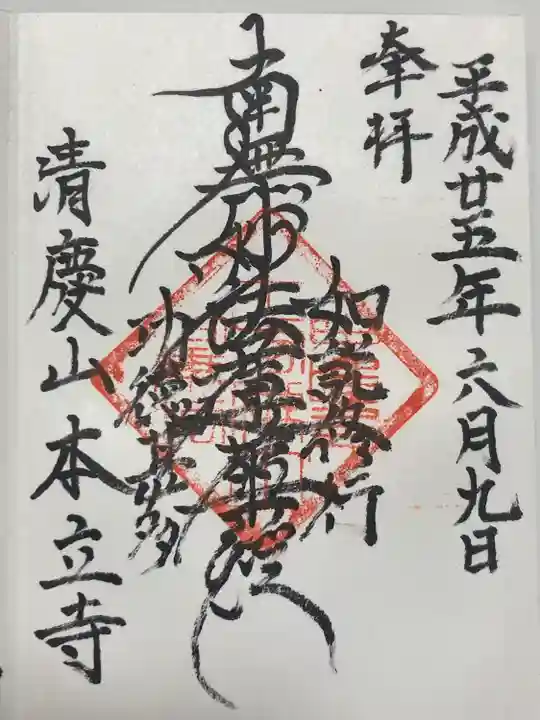 平成廿五年六月九日
奉拝
如説修行
南無妙法蓮華経
清慶山本立寺